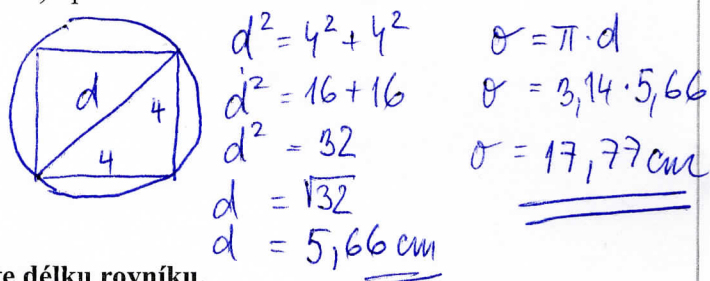 d
4
4
d² = 4² + 4²
d² = 16 + 16
d² = 32
d = √32
d = 5,66 cm
σ = π · d
σ = 3,14 · 5,66
σ = 17,77 cm
délku rovníku